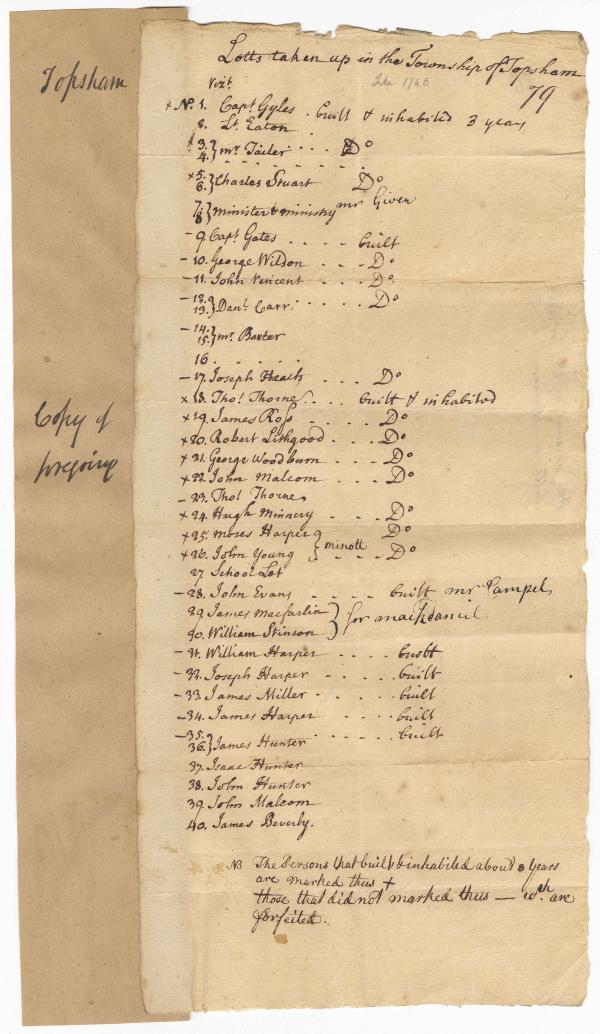 Topsham
Copy of
foregoing
Lotts taken up in the Township of Topsham
Vizt. 1746
79
+ No. 1. Capt Gyles . built & inhabited 3 years
2. Lt. Eaton .
+ 3. } mr Tailer . . . Do
4.
+ 5. } Charles Stuart Do
6.
7. } minister & ministry mr Given
8.
- 9. Capt Gates . . . . built
- 10. George Wildon . . . Do
- 11. John Vincent . . . Do
- 12. } Danl Carr . . . . . Do
13.
- 14. } mr. Baxter
15.
16 . . . . . .
- 17. Joseph Heath . . . Do
+ 18. Thos Thorne . . . built & inhabited
+ 19. James Ross . . . . . Do
+ 20. Robert Lithgood . . . Do
+ 21. George Woodburn . . . Do
+ 22. John Malcom . . . Do
- 23. Thos Thorne
+ 24. Hugh Minnery . . . Do
+ 25. Moses Harper } minott Do
+ 26. John Young . . . Do
27. School Lot
- 28. John Evans . . . . built mr
29. James Macfarlin } for
30. William Stinson
- 31. William Harper . . . . built
- 32. Joseph Harper . . . . built
- 33. James Miller . . . . . built
- 34. James Harper . . . . built
- 35. } James Hunter . . . . . built
36.
37. Isaac Hunter
38. John Hunter
39. John Malcom
40. James Beverly.
NB The Persons that built & inhabited about 3 years
are marked thus +
those that did not marked thus — wch. are
forfeited.